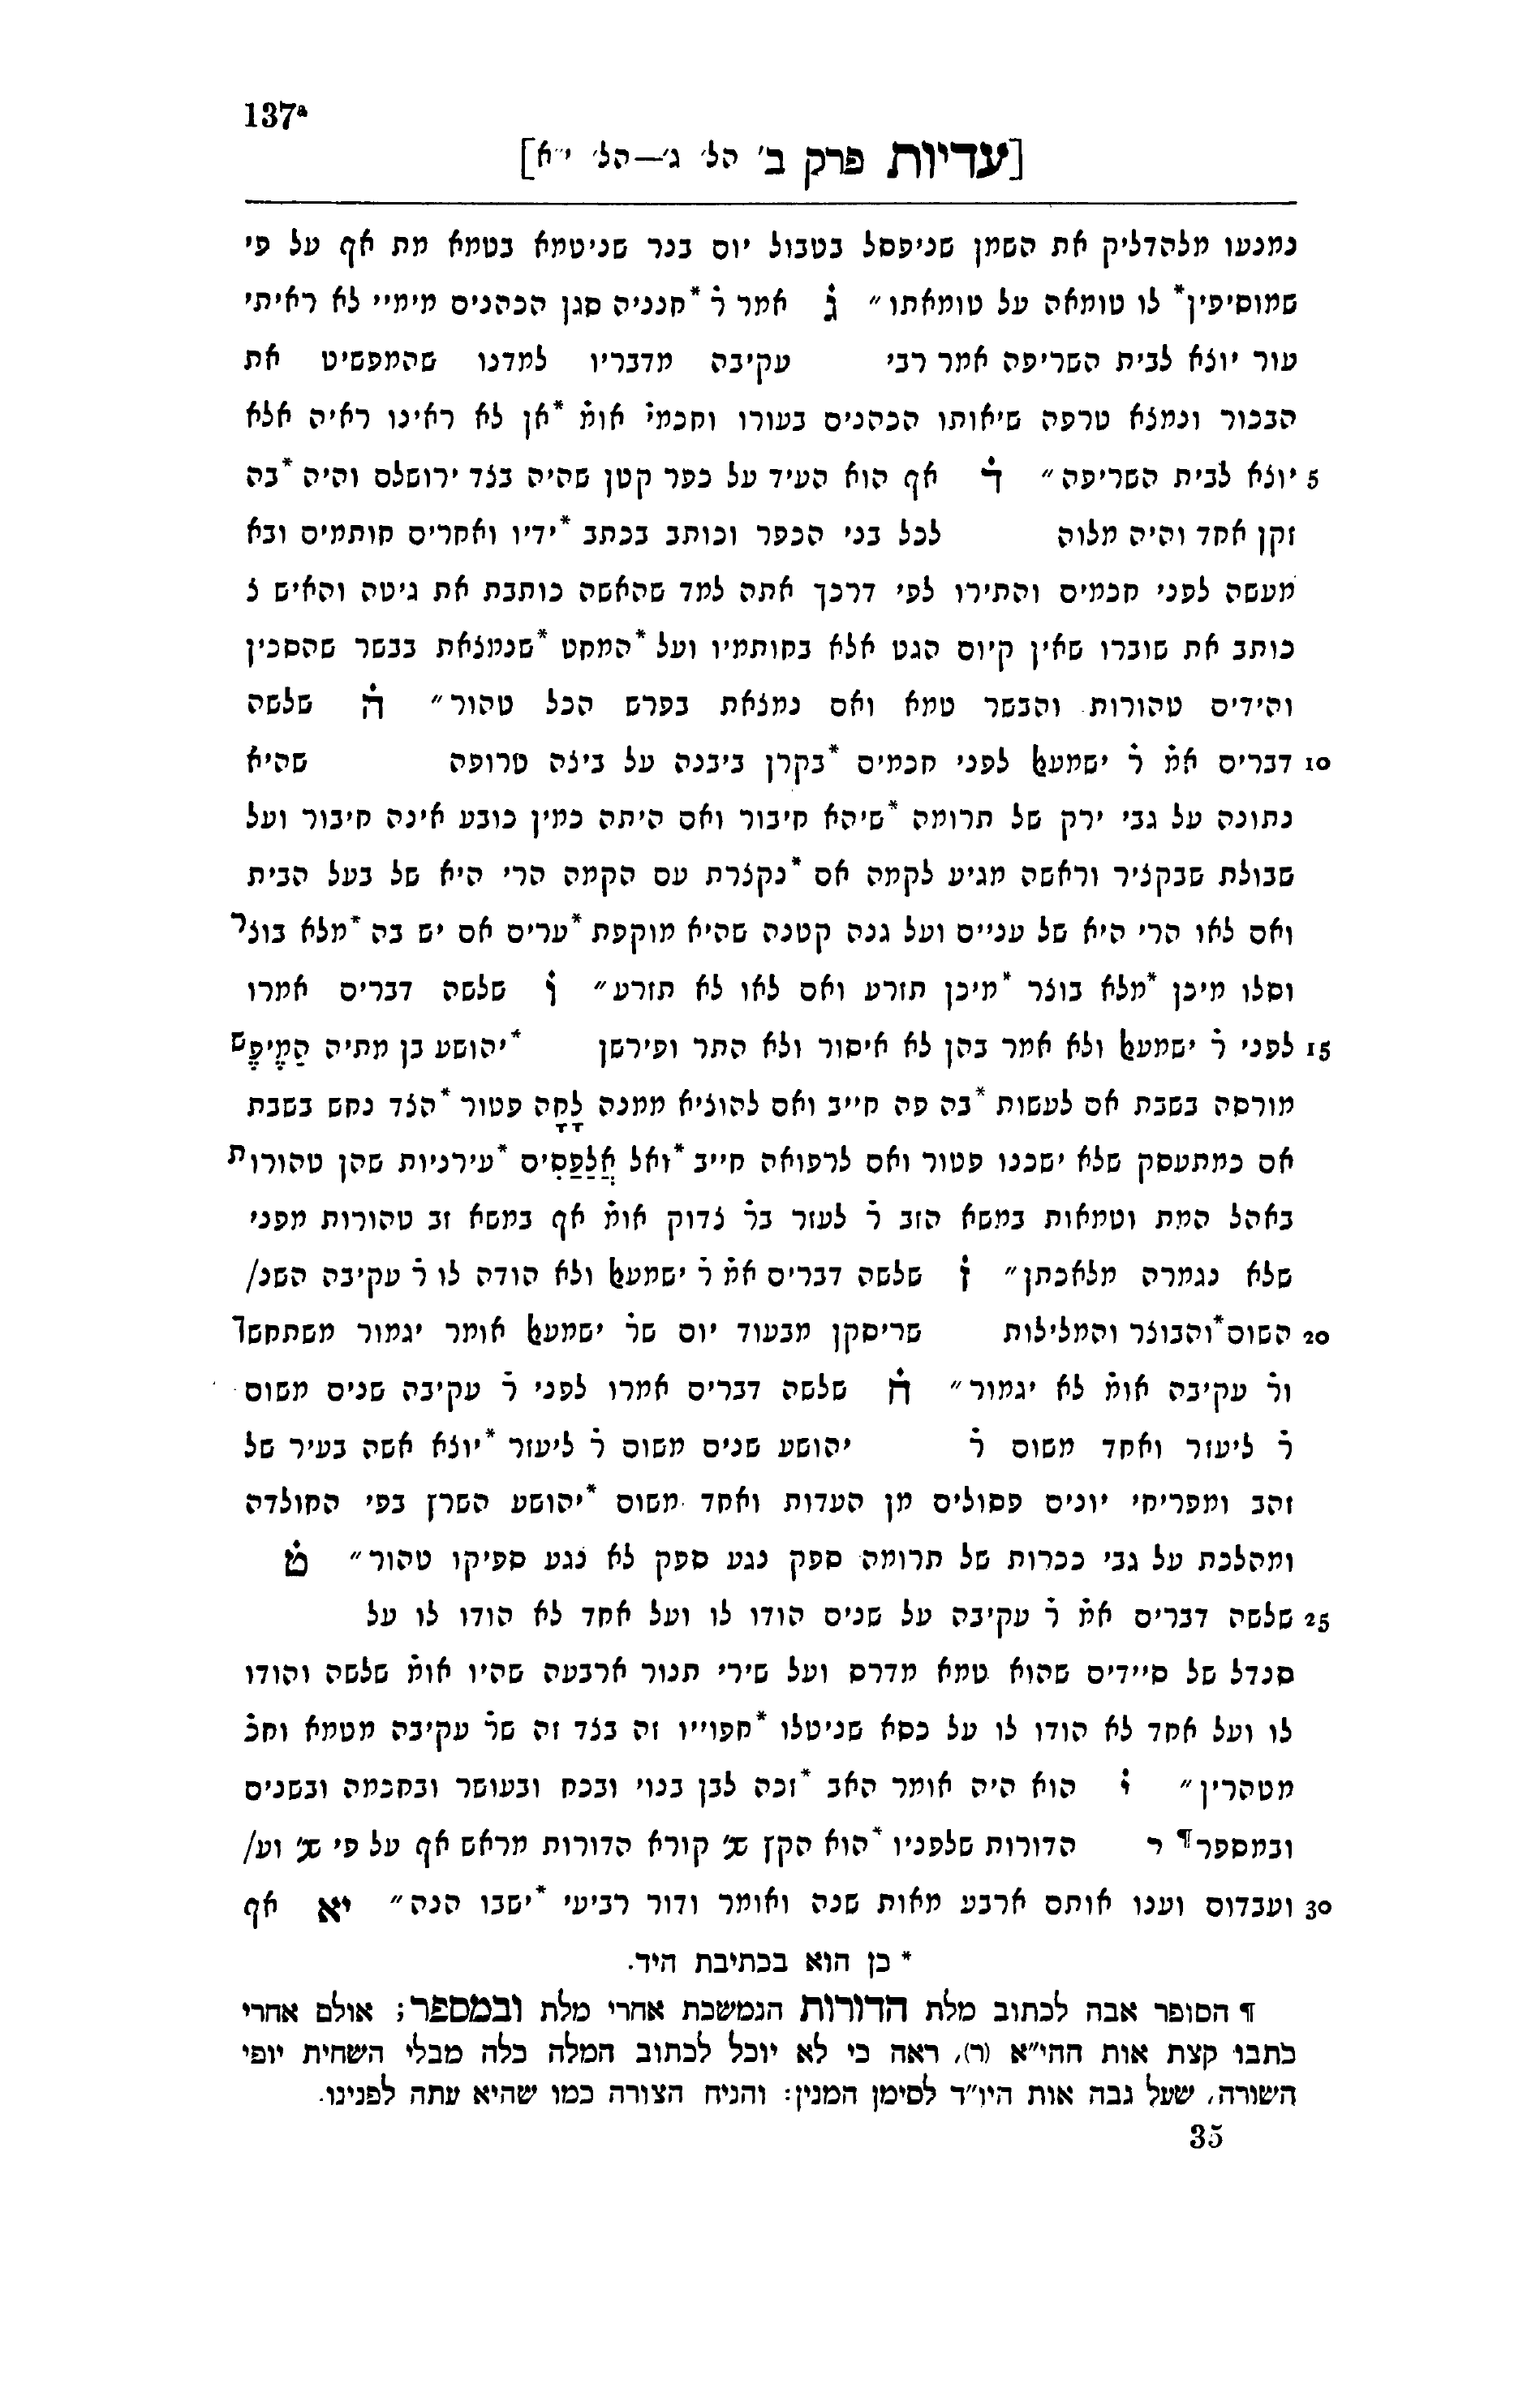 137ᵃ
[עדיות פרק ב' הל' ג'—הל' י״א]
נמנעו מלהדליק את השמן שניפסל בטבול יום בנר שניטמא בטמא מת אף על פי
שמוסיפין* לו טומאה על טומאתו״ ג̇ אמר ר̇ *חנניה סגן הכהנים מימיי לא ראיתי
עור יוצא לבית השריפה אמר רבי עקיבה מדבריו למדנו שהמפשיט את
הבכור ונמצא טרפה שיאותו הכהנים בעורו וחכמי̇ אומ̇ *אן לא ראינו ראיה אלא
5 יוצא לבית השריפה״ ד̇ אף הוא העיד על כפר קטן שהיה בצד ירושלם והיה *בה
זקן אחד והיה מלוה לכל בני הכפר וכותב בכתב *ידיו ואחרים חותמים ובא
מעשה לפני חכמים והתירו לפי דרכך אתה למד שהאשה כותבת את גיטה והאיש צ
כותב את שוברו שאין קיום הגט אלא בחותמיו ועל *המחט *שנמצאת בבשר שהסכין
והידים טהורות והבשר טמא ואם נמצאת בפרש הכל טהור״ ה̇ שלשה
10 דברים אמ̇ ר̇ ישמעאל לפני חכמים *בקרן ביבנה על ביצה טרופה שהיא
נתונה על גבי ירק של תרומה *שיהא חיבור ואם היתה כמין כובע אינה חיבור ועל
שבולת שבקציר וראשה מגיע לקמה אם *נקצרת עם הקמה הרי היא של בעל הבית
ואם לאו הרי היא של עניים ועל גנה קטנה שהיא מוקפת *ערים אם יש בה *מלא בוצר
וסלו מיכן *מלא בוצר *מיכן תזרע ואם לאו לא תזרע״ ו̇ שלשה דברים אמרו
15 לפני ר̇ ישמעאל ולא אמר בהן לא איסור ולא התר ופירשן *יהושע בן מתיה הַמֵיפֵש
מורסה בשבת אם לעשות *בה פה חייב ואם להוציא ממנה לֵחָה פטור *הצד נחש בשבת
אם כמתעסק שלא ישכנו פטור ואם לרפואה חייב *ואל אֲלַפַסִים *עירניות שהן טהורות
באהל המת וטמאות במשא הזב ר̇ לעזר בר̇ צדוק אומ̇ אף במשא זב טהורות מפני
שלא נגמרה מלאכתן״ ז̇ שלשה דברים אמ̇ ר̇ ישמעאל ולא הודה לו ר̇ עקיבה השנ/
20 השום*והבוצר והמלילות שריסקן מבעוד יום שר̇ ישמעאל אומר יגמור משתחשך
ור̇ עקיבה אומ̇ לא יגמור״ ח̇ שלשה דברים אמרו לפני ר̇ עקיבה שנים משום
ר̇ ליעזר ואחד משום ר̇ יהושע שנים משום ר̇ ליעזר *יוצא אשה בעיר של
זהב ומפריחי יונים פסולים מן העדות ואחד משום *יהושע השרץ בפי החולדה
ומהלכת על גבי ככרות של תרומה ספק נגע ספק לא נגע ספיקו טהור״ ט̇
25 שלשה דברים אמ̇ ר̇ עקיבה על שנים הודו לו ועל אחד לא הודו לו על
סנדל של סיידים שהוא טמא מדרס ועל שירי תנור ארבעה שהיו אומ̇ שלשה והודו
לו ועל אחד לא הודו לו על כסא שניטלו *חפוייו זה בצד זה שר̇ עקיבה מטמא וחכ̇
מטהרין״ י̇ הוא היה אומר האב *זכה לבן בנוי ובכח ובעושר ובחכמה ובשנים
ובמספר¶ ר הדורות שלפניו *הוא הקץ שנ׳ קורא הדורות מראש אף על פי שנ׳ וע/
30 ועבדום וענו אותם ארבע מאות שנה ואומר ודור רביעי *ישבו הנה״ יא אף
* כן הוא בכתיבת היד.
¶ הסופר אבה לכתוב מלת הדורות הנמשכת אחרי מלת ובמספר; אולם אחרי
כתבו קצת אות ההי״א (ר), ראה כי לא יוכל לכתוב המלה כלה מבלי השחית יופי
השורה, שעל גבה אות היו״ד לסימן המנין: והניח הצורה כמו שהיא עתה לפנינו.
35